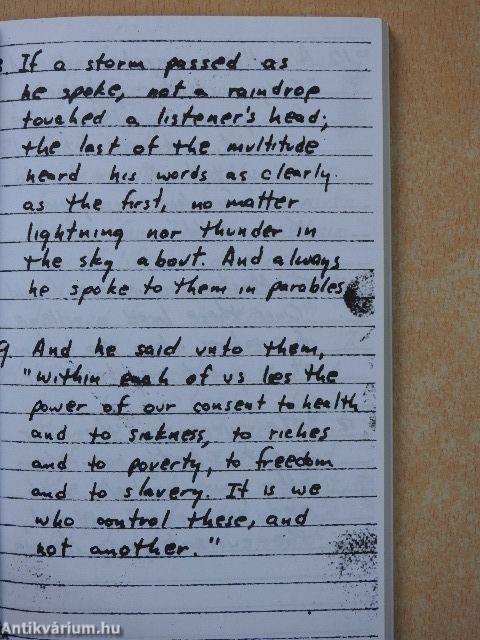 8. If a storm passed as
he spoke, not a raindrop
touched a listener's head;
the last of the multitude
heard his words as clearly
as the first, no matter
lightning nor thunder in
the sky about. And always
he spoke to them in parables.
9. And he said unto them,
"Within each of us lies the
power of our consent to health
and to sickness, to riches
and to poverty, to freedom
and to slavery. It is we
who control these, and
not another."
Antikvárium.hu